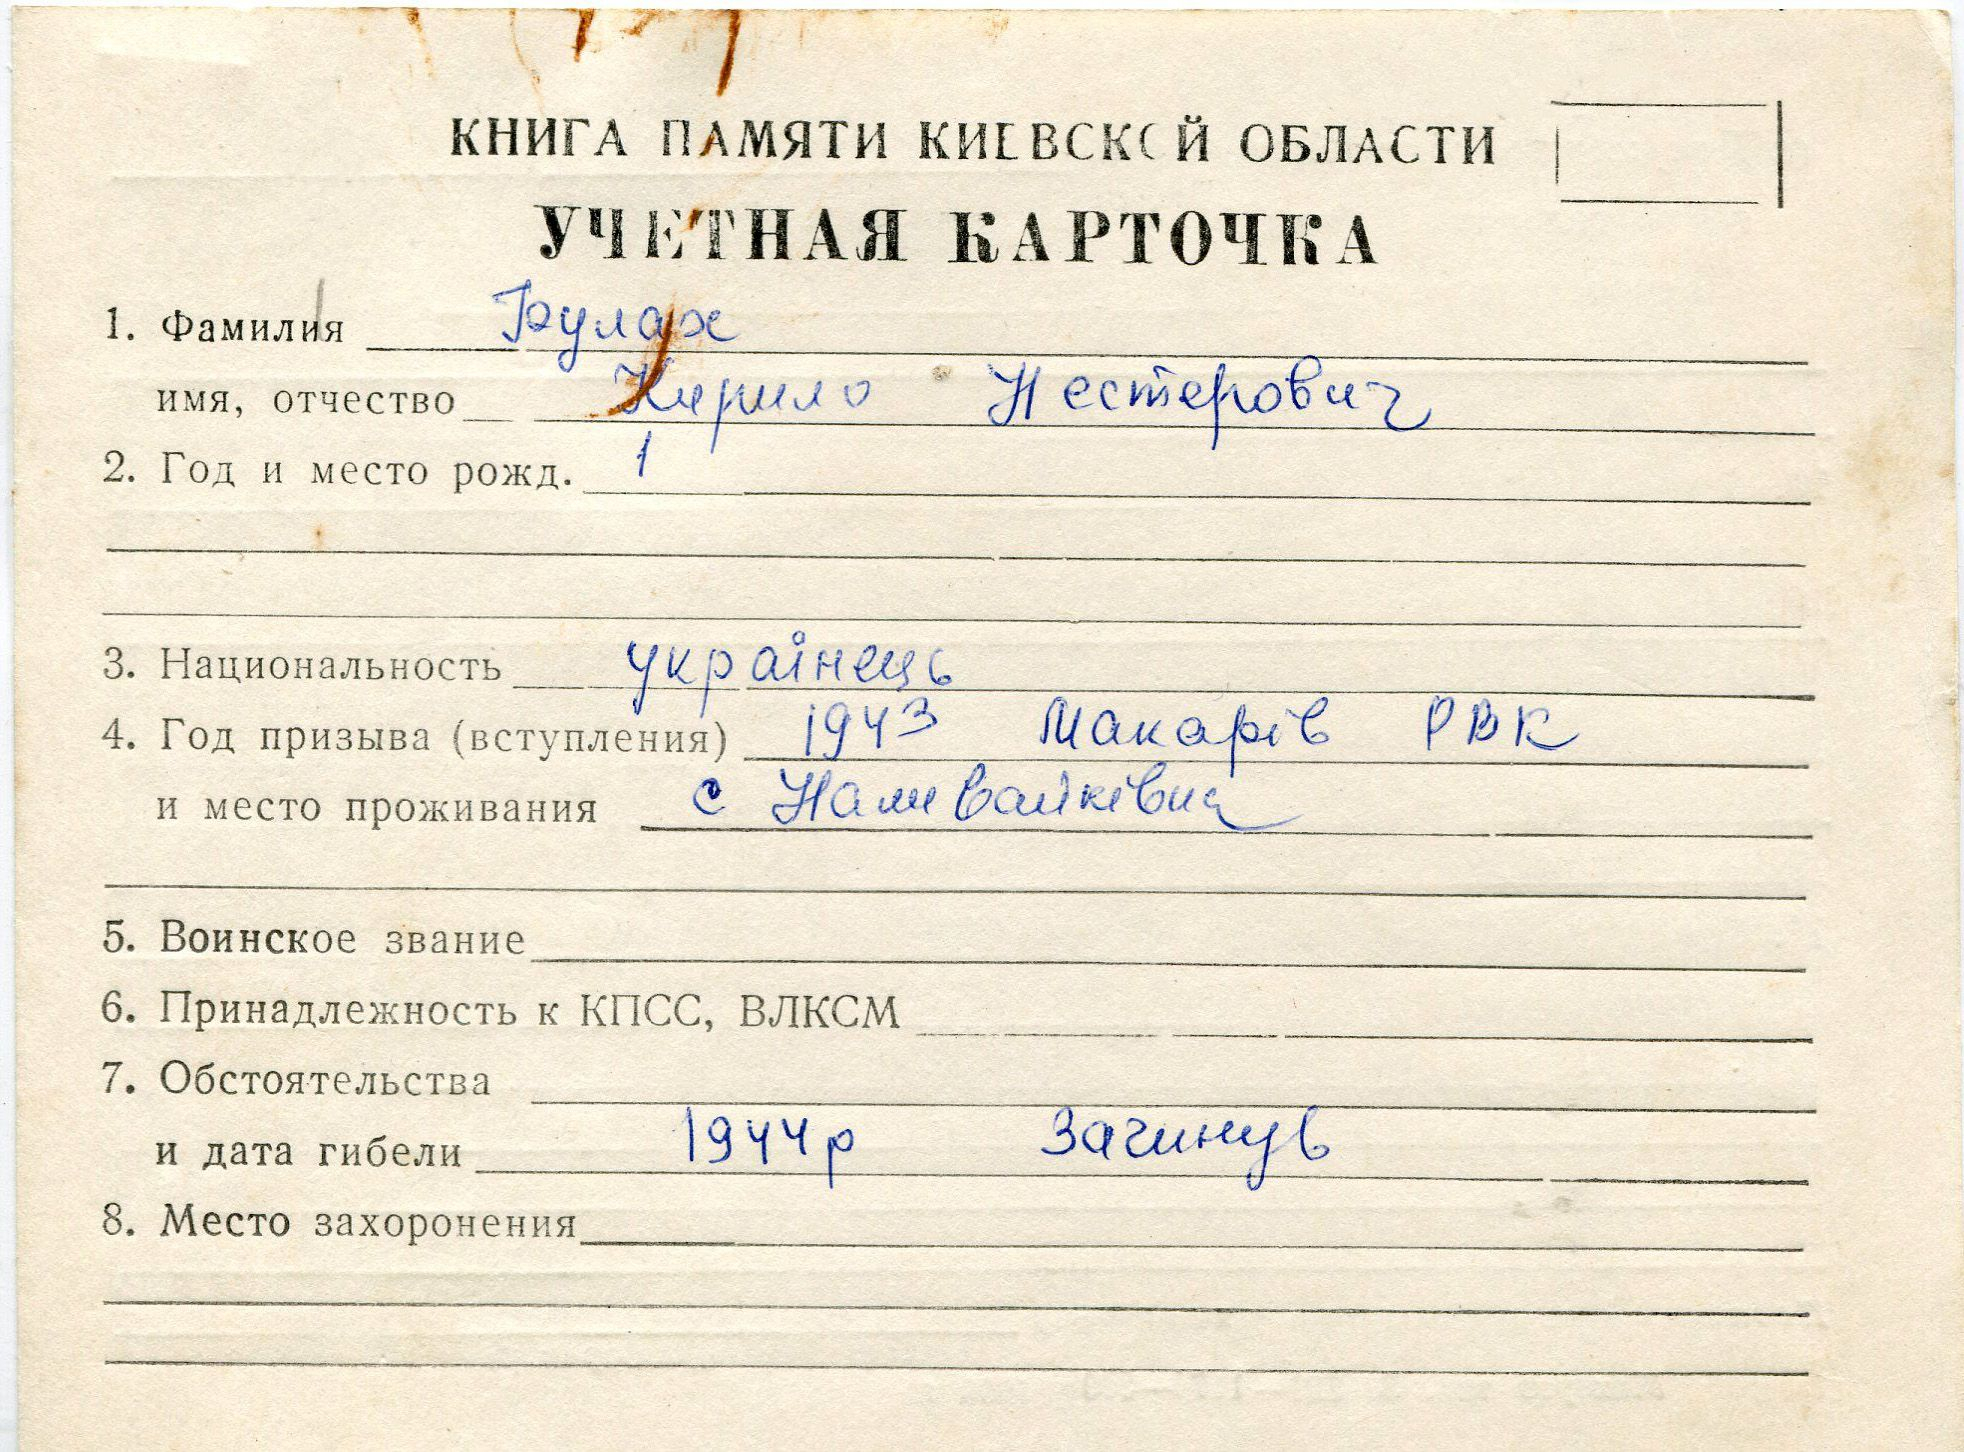 КНИГА ПАМЯТИ КИЕВСКОЙ ОБЛАСТИ
УЧЕТНАЯ КАРТОЧКА
1. Фамилия Булах
имя, отчество Кирило Нестерович
2. Год и место рожд. 1
3. Национальность українець
4. Год призыва (вступления) 1943 Макарів РВК
и место проживания с Наливайківка
5. Воинское звание
6. Принадлежность к КПСС, ВЛКСМ
7. Обстоятельства
и дата гибели 1944р Загинув
8. Место захоронения